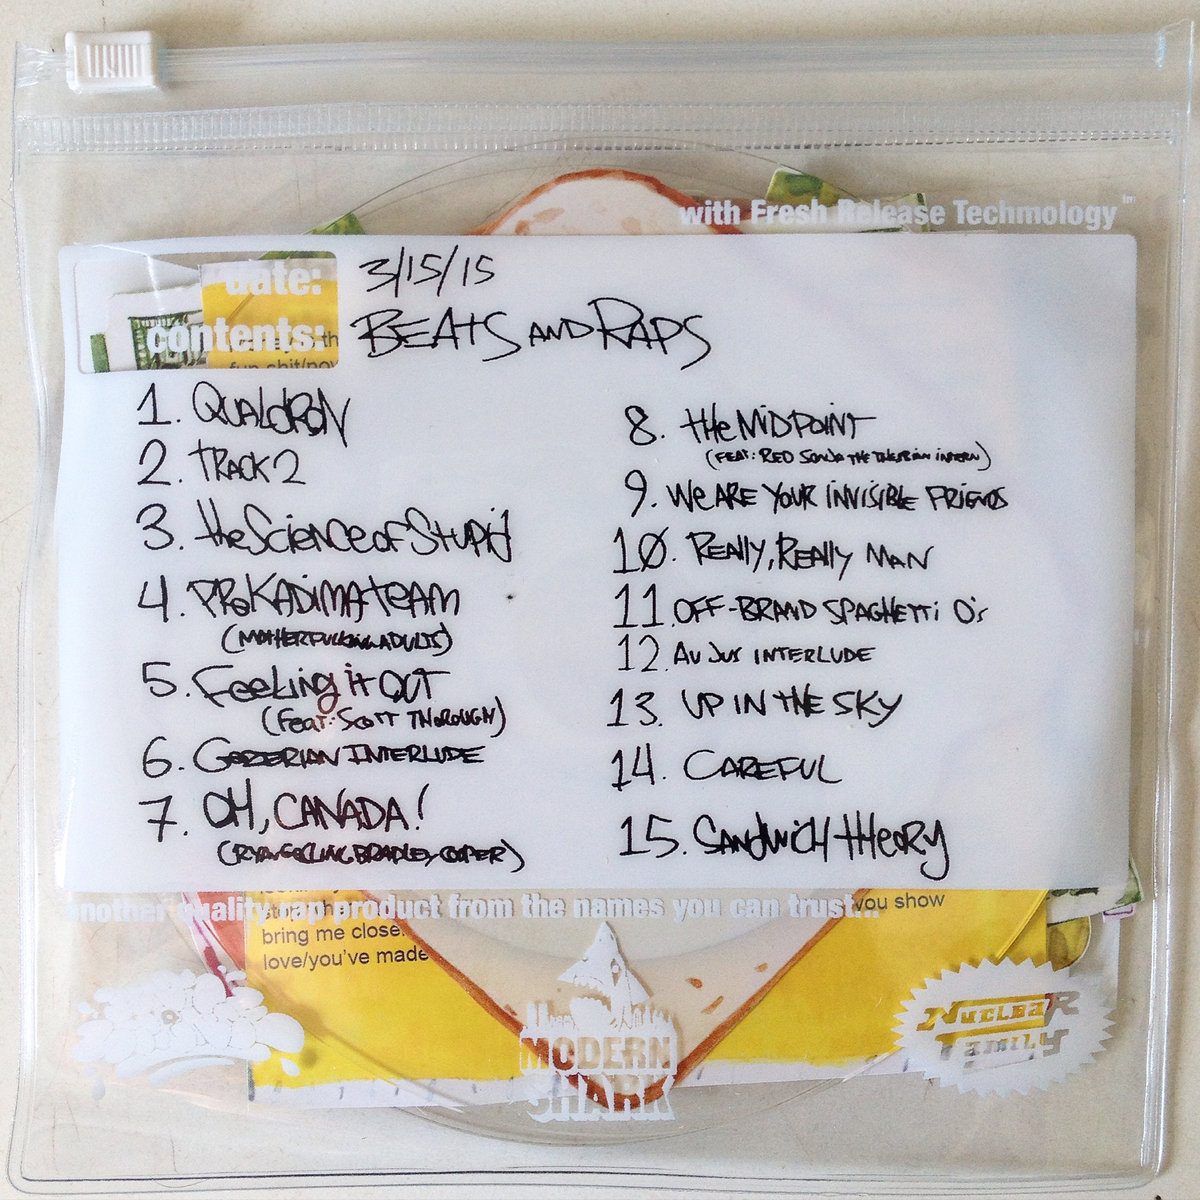 with Fresh Release Techmology
date: 3/15/15
contents: BEATS AND RAPS
fun shit/now
1. QUALDRON
2. TRACK 2
3. the Science of Stupid
4. PRoKADIMA TEAM
(MOTHERFUCKING ADULTS)
5. Feeling it OUT
(Feat: SCOTT THOROUGH)
6. GOZERIAN INTERLUDE
7. OH, CANADA!
(RYAN GOSLING, BRADLEY COOPER)
8. the MIDPOINT
(FEAT: RED SONJA THE INTERN)
9. We ARE YOUR INVISIBLE FRIENDS
10. REALLY, REALLY MAN
11. OFF-BRAND SPAGHETTI O's
12. AU JUS INTERLUDE
13. UP IN THE SKY
14. CAREFUL
15. SANDWICH THEORY
another quality rap product from the names you can trust...
you show
bring me close.
love/you've made
MODERN
SHARK
NUCLEAR
FAMILY